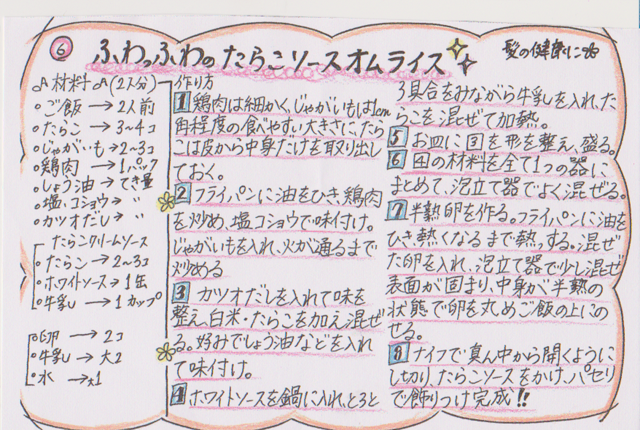 6 ふわっふわのたらこソースオムライス 髪の健康に
材料(2人分)
ご飯→2人前
たらこ→3~4コ
じゃがいも→2~3コ
鶏肉→1パック
しょう油→てき量
塩、コショウ→〃
カツオだし→〃
たらこクリームソース
たらこ→2~3コ
ホワイトソース→1缶
牛乳→1カップ
卵→2コ
牛乳→大2
水→大1
作り方
1 鶏肉は細かく、じゃがいもは1cm
角程度の食べやすい大きさに、たら
こは皮から中身だけを取り出し
ておく。
2 フライパンに油をひき、鶏肉
を炒め、塩コショウで味付け。
じゃがいもを入れ、火が通るまで
炒める
3 カツオだしを入れて味を
整え、白米・たらこを加え混ぜ
る。好みでしょう油などを入れ
て味付け。
4 ホワイトソースを鍋に入れ、とろと
ろ具合をみながら牛乳を入れ、た
らこを混ぜて加熱。
5 お皿に3を形を整え、盛る。
6 の材料を全て1つの器に
まとめて、泡立て器でよく混ぜる。
7 半熟卵を作る。フライパンに油を
ひき熱くなるまで熱っする。混ぜ
た卵を入れ、泡立て器で少し混ぜ
表面が固まり、中身が半熟の
状態で卵を丸めご飯の上にの
せる。
8 ナイフで真ん中から開くように
し切り、たらこソースをかけ、パセリ
で飾りつけ完成!!